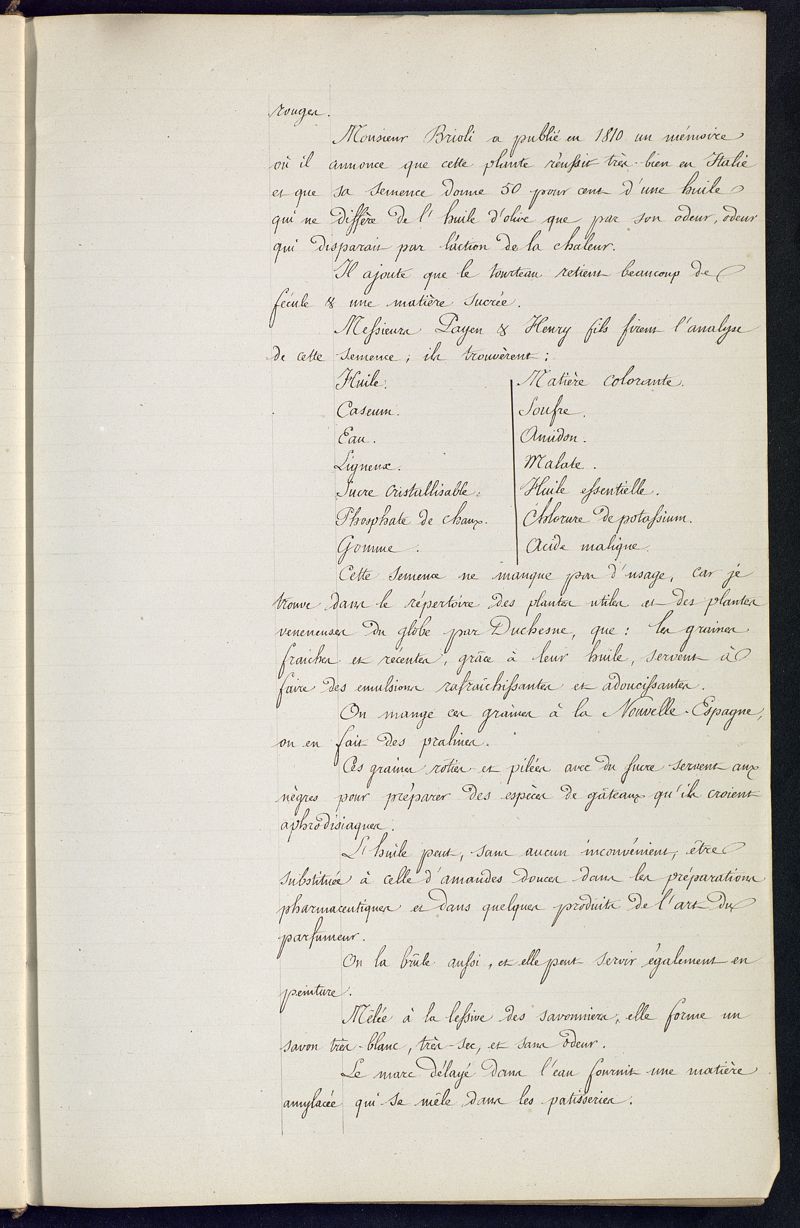 rouges.
Monsieur Brioli a publié en 1810 un mémoire
où il annonce que cette plante réussit très-bien en Italie
et que sa semence donne 50 pour cent d'une huile
qui ne diffère de l'huile d'olive que par son odeur, odeur
qui disparait par l'action de la chaleur.
Il ajoute que le tourteau retient beaucoup de
fécule & une matière sucrée.
Messieurs Payen & Henry fils firent l'analyse
de cette semence ; ils trouvèrent :
Huile. Matière colorante.
Caseum. Soufre.
Eau. Amidon.
Ligneux. Malate.
Sucre cristallisable. Huile essentielle.
Phosphate de chaux. Chlorure de potassium.
Gomme. Acide malique.
Cette semence ne manque pas d'usage, car je
trouve dans le répertoire des plantes utiles et des plantes
veneneuses du globe par Duchesne, que : les graines
fraiches et récentes, grâce à leur huile, servent à
faire des emulsions rafraîchissantes et adoucissantes.
On mange ces graines à la Nouvelle-Espagne,
on en fait des pralines.
Ces graines roties et pilées avec du sucre servent aux
nègres pour préparer des espèces de gâteaux qu'ils croient
aphrodisiaques.
L'huile peut, sans aucun inconvénient, être
substituée à celle d'amandes douces dans les préparations
pharmaceutiques et dans quelques produits de l'art du
parfumeur.
On la brûle aussi, et elle peut servir également en
peinture.
Mêlée à la lessive des savonniers, elle forme un
savon très-blanc, très-sec, et sans odeur.
Le marc délayé dans l'eau fournit une matière
amylacée qui se mêle dans les patisseries.